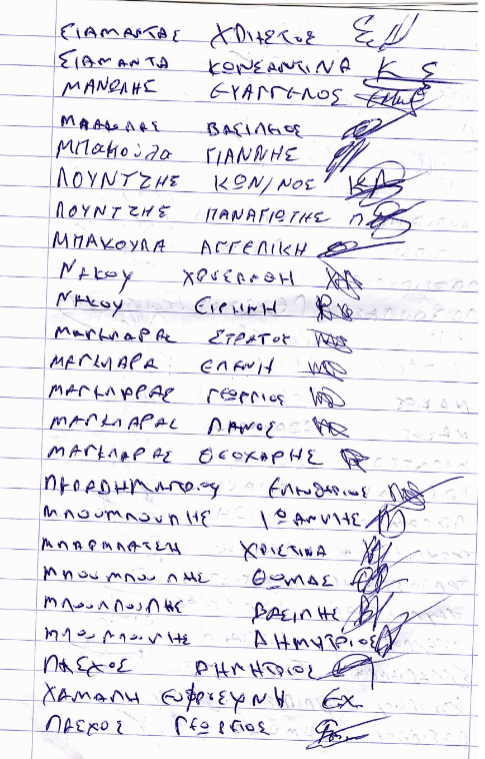 ΣΙΑΜΑΝΤΑΣ ΧΡΗΣΤΟΣ
ΣΙΑΜΑΝΤΑ ΚΩΝΣΑΝΤΙΝΑ Κ Σ
ΜΑΝΩΛΗΣ ΕΥΑΓΓΕΛΟΣ
ΒΑΣΙΛΕΙΟΣ
ΜΠΑΚΟΥΛΑ ΓΙΑΝΝΗΣ
ΛΟΥΝΤΖΗΣ ΚΩΝ/ΝΟΣ
ΛΟΥΝΤΖΗΣ ΠΑΝΑΓΙΩΤΗΣ
ΜΠΑΚΟΥΛΑ ΑΓΓΕΛΙΚΗ
ΝΑΚΟΥ ΧΡΥΣΑΝΘΗ
ΝΑΚΟΥ ΕΙΡΗΝΗ
ΜΑΓΚΛΑΡΑΣ ΣΤΡΑΤΟΣ
ΜΑΓΚΛΑΡΑ ΕΛΕΝΗ
ΜΑΓΚΛΑΡΑΣ ΓΕΩΡΓΙΟΣ
ΜΑΓΚΛΑΡΑΣ ΠΑΝΟΣ
ΜΑΓΚΛΑΡΑΣ ΘΕΟΧΑΡΗΣ
ΠΑΠΑΔΗΜΗΤΡΙΟΥ ΕΛΕΥΘΕΡΙΟΣ
ΜΠΟΥΜΠΟΥΛΗΣ ΙΩΑΝΝΗΣ
ΧΡΙΣΤΙΝΑ
ΜΠΟΥΜΠΟΥΛΗΣ ΘΩΜΑΣ
ΜΠΟΥΜΠΟΥΛΗΣ ΒΑΣΙΛΗΣ
ΜΠΟΥΜΠΟΥΛΗΣ ΔΗΜΗΤΡΙΟΣ
ΠΑΣΧΟΣ ΔΗΜΗΤΡΙΟΣ
ΧΑΜΑΛΗ ΕΥΦΡΟΣΥΝΗ Ε.Χ.
ΠΑΣΧΟΣ ΓΕΩΡΓΙΟΣ